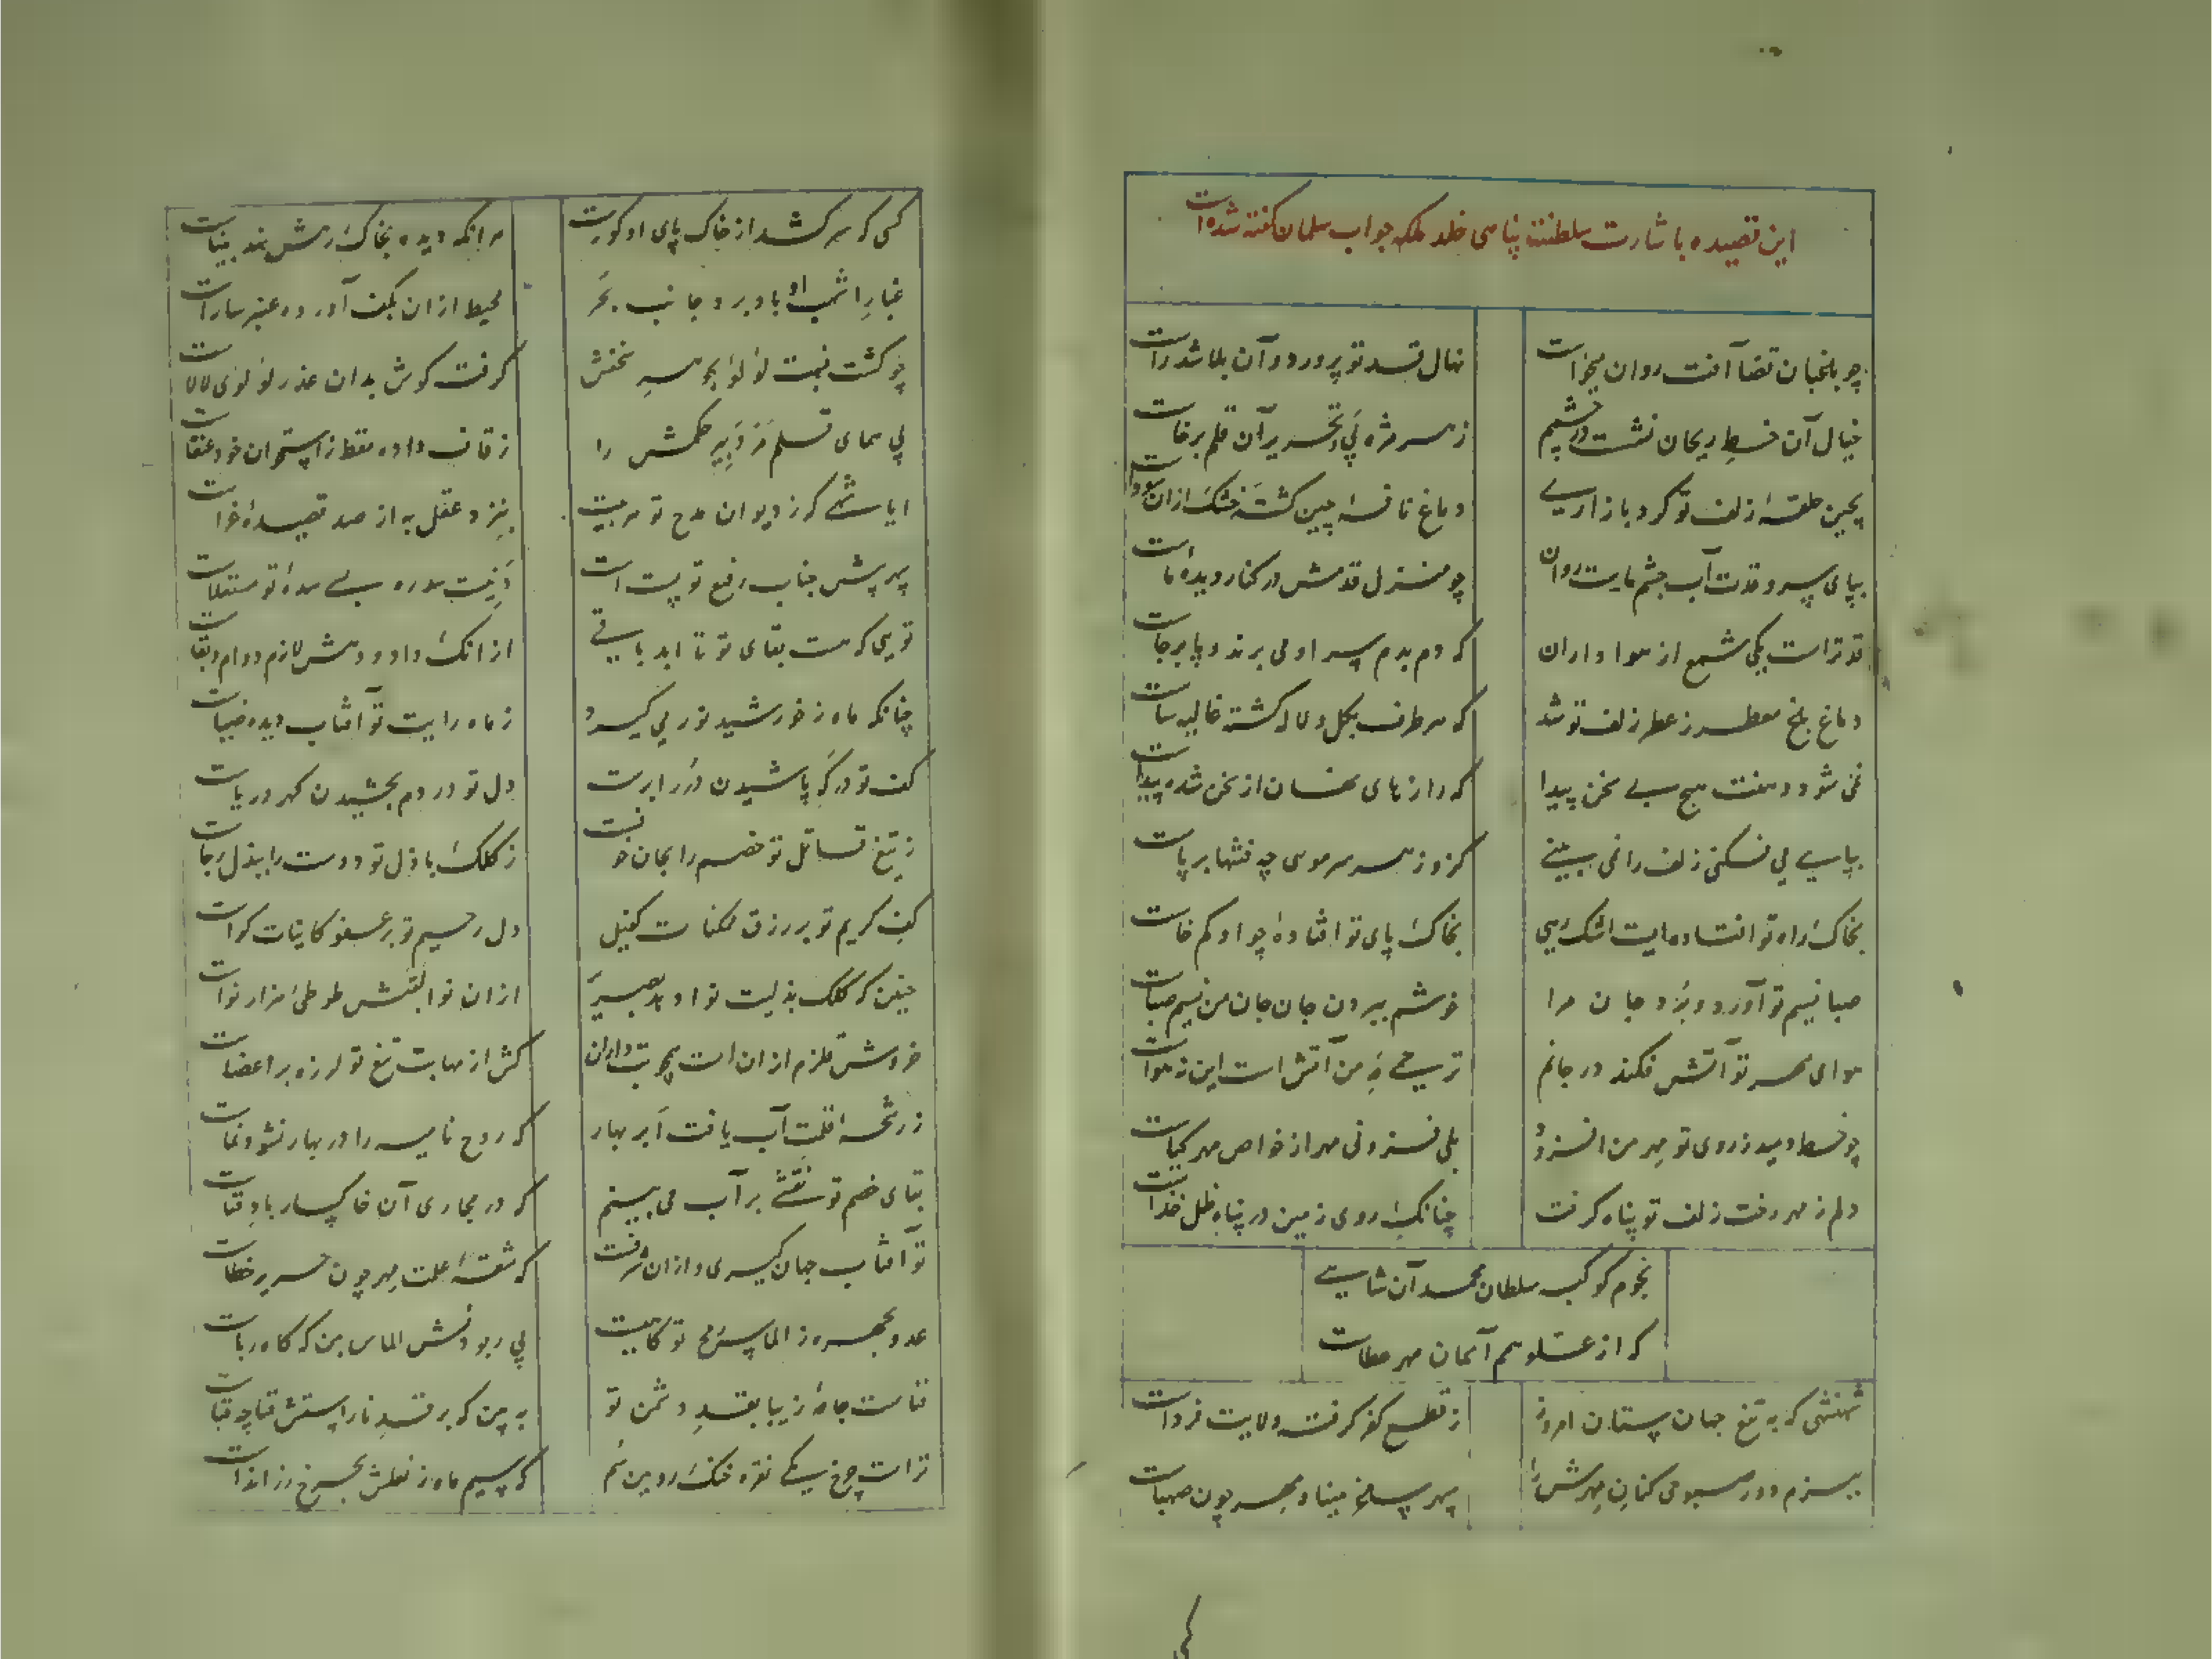 این قصیده باشارت سلطنت پناهی خلد ملکه جواب سلمان کفته شده است
چو باغبان قضا آفت روان میخواست نهال قد تو پرورد و آن بلا شد راست
خیال آن خط ریحان نشست در چشمم ز هر مژه پی تحریر آن قلم برخاست
بچین حلقهٔ زلف تو کرد بازاری دماغ نافهٔ چین کشته خشک ازان سوداست
بپای سرو قدت آب چشم ماست روان چو منزل قدمش در کنار دیدهٔ ماست
قد تراست یکی شمع از هوا داران که دم بدم سر او می برند و پا برجاست
دماغ بلخ معطر ز عطر زلف تو شد که هر طرف بکل و لاله کشته غالیه ساست
نمی شود دهنت هیچ بی سخن پیدا که رازهای نهان از سخن شده پیداست
بپای می فکنی زلف را نمی بینی کزو ز هر سر موی چه فتنها برپاست
بخاک راه تو افتاده ایست اشک رهی بخاک پای تو افتادهٔ چو او کم خاست
صبا نسیم تو آورد و برد جان مرا خوشم ببردن جان جان من نسیم صباست
هوای مهر تو آتش فکند در جانم نه من آتش است این نه هواست
چو خط دمید ز روی تو مهر من افزود بلی فزونی مهر از خواص مهر کیاست
دلم ز مهر رخت زلف تو پناه کرفت چنانک روی زمین در پناه ظل خداست
نجوم کوکبه سلطان محمد آن شاهی
که از علو هم آسمان مهر عطاست
شهنشهی که به تیغ جهان ستان امروز ز قطع کفر کرفت ولایت فرداست
ببزم دور صبوحی کنان مهرش را سپهر ساغر مینا و مهر چون صهباست
کسی که سر کشد از خاک پای او کورست هر انکه دیده بخاک رهش نهد بیناست
غبار اشهب او باد برد جانب بحر محیط ازان بکف آورده عنبر ساراست
چو کشت نسبت لؤلؤ بجوهر سخنش کرفت کوش بدان عذر لؤلؤی لالاست
پی همای قلم مر دبیر حکمش را ز قاف داده مقط ز استخوان خود عنقاست
ایا شهی که ز دیوان مدح تو هر بیت بنزد عقل به از صد قصیدهٔ غراست
سپهر پیش جناب رفیع تو پست است
تویی که هست بقای تو تا ابد باقی از انک داد و دهش لازم دوام و بقاست
چنانکه ماه ز خورشید نور می کیرد ز ماه رایت تو آفتاب دیده ضیاست
کف تو در که پاشیدن درر ابرست دل تو در دم بخشیدن کهر دریاست
ز تیغ قاتل تو خصم را بجان خوفست ز کلک باذل تو دوست را ببذل رجاست
کف کریم تو بر رزق ممکنات کفیل دل رحیم تو بر عفو کاینات کواست
چنین که کلک بذلیت نوا دهد بصریر ازان نوا لقبش طوطیٔ هزار نواست
خروش قلزم ازان است همچو تب داران کش از مهابت تیغ تو لرزه بر اعضاست
ز رشحه قلمت آب یافت ابر بهار که روح نامیه را در بهار نشو و نماست
بقای خصم تو نقشی بر آب می بینم که در مجاری آن خاکسار باد فناست
تو آفتاب جهان کیری و ازان شرفت که شقهٔ علمت مهر چون حریر خطاست
عدو بچهره ز الماس رمح تو کاهیست پی ربودنش الماس بین که کاه رباست
فناست جامهٔ زیبا بقد دشمن تو به بین که بر قد ناراستش فنا چه قباست
تراست چرخ یکی نقره خنک رویین سم که سیم ماه ز نعلش بچرخ در انداست